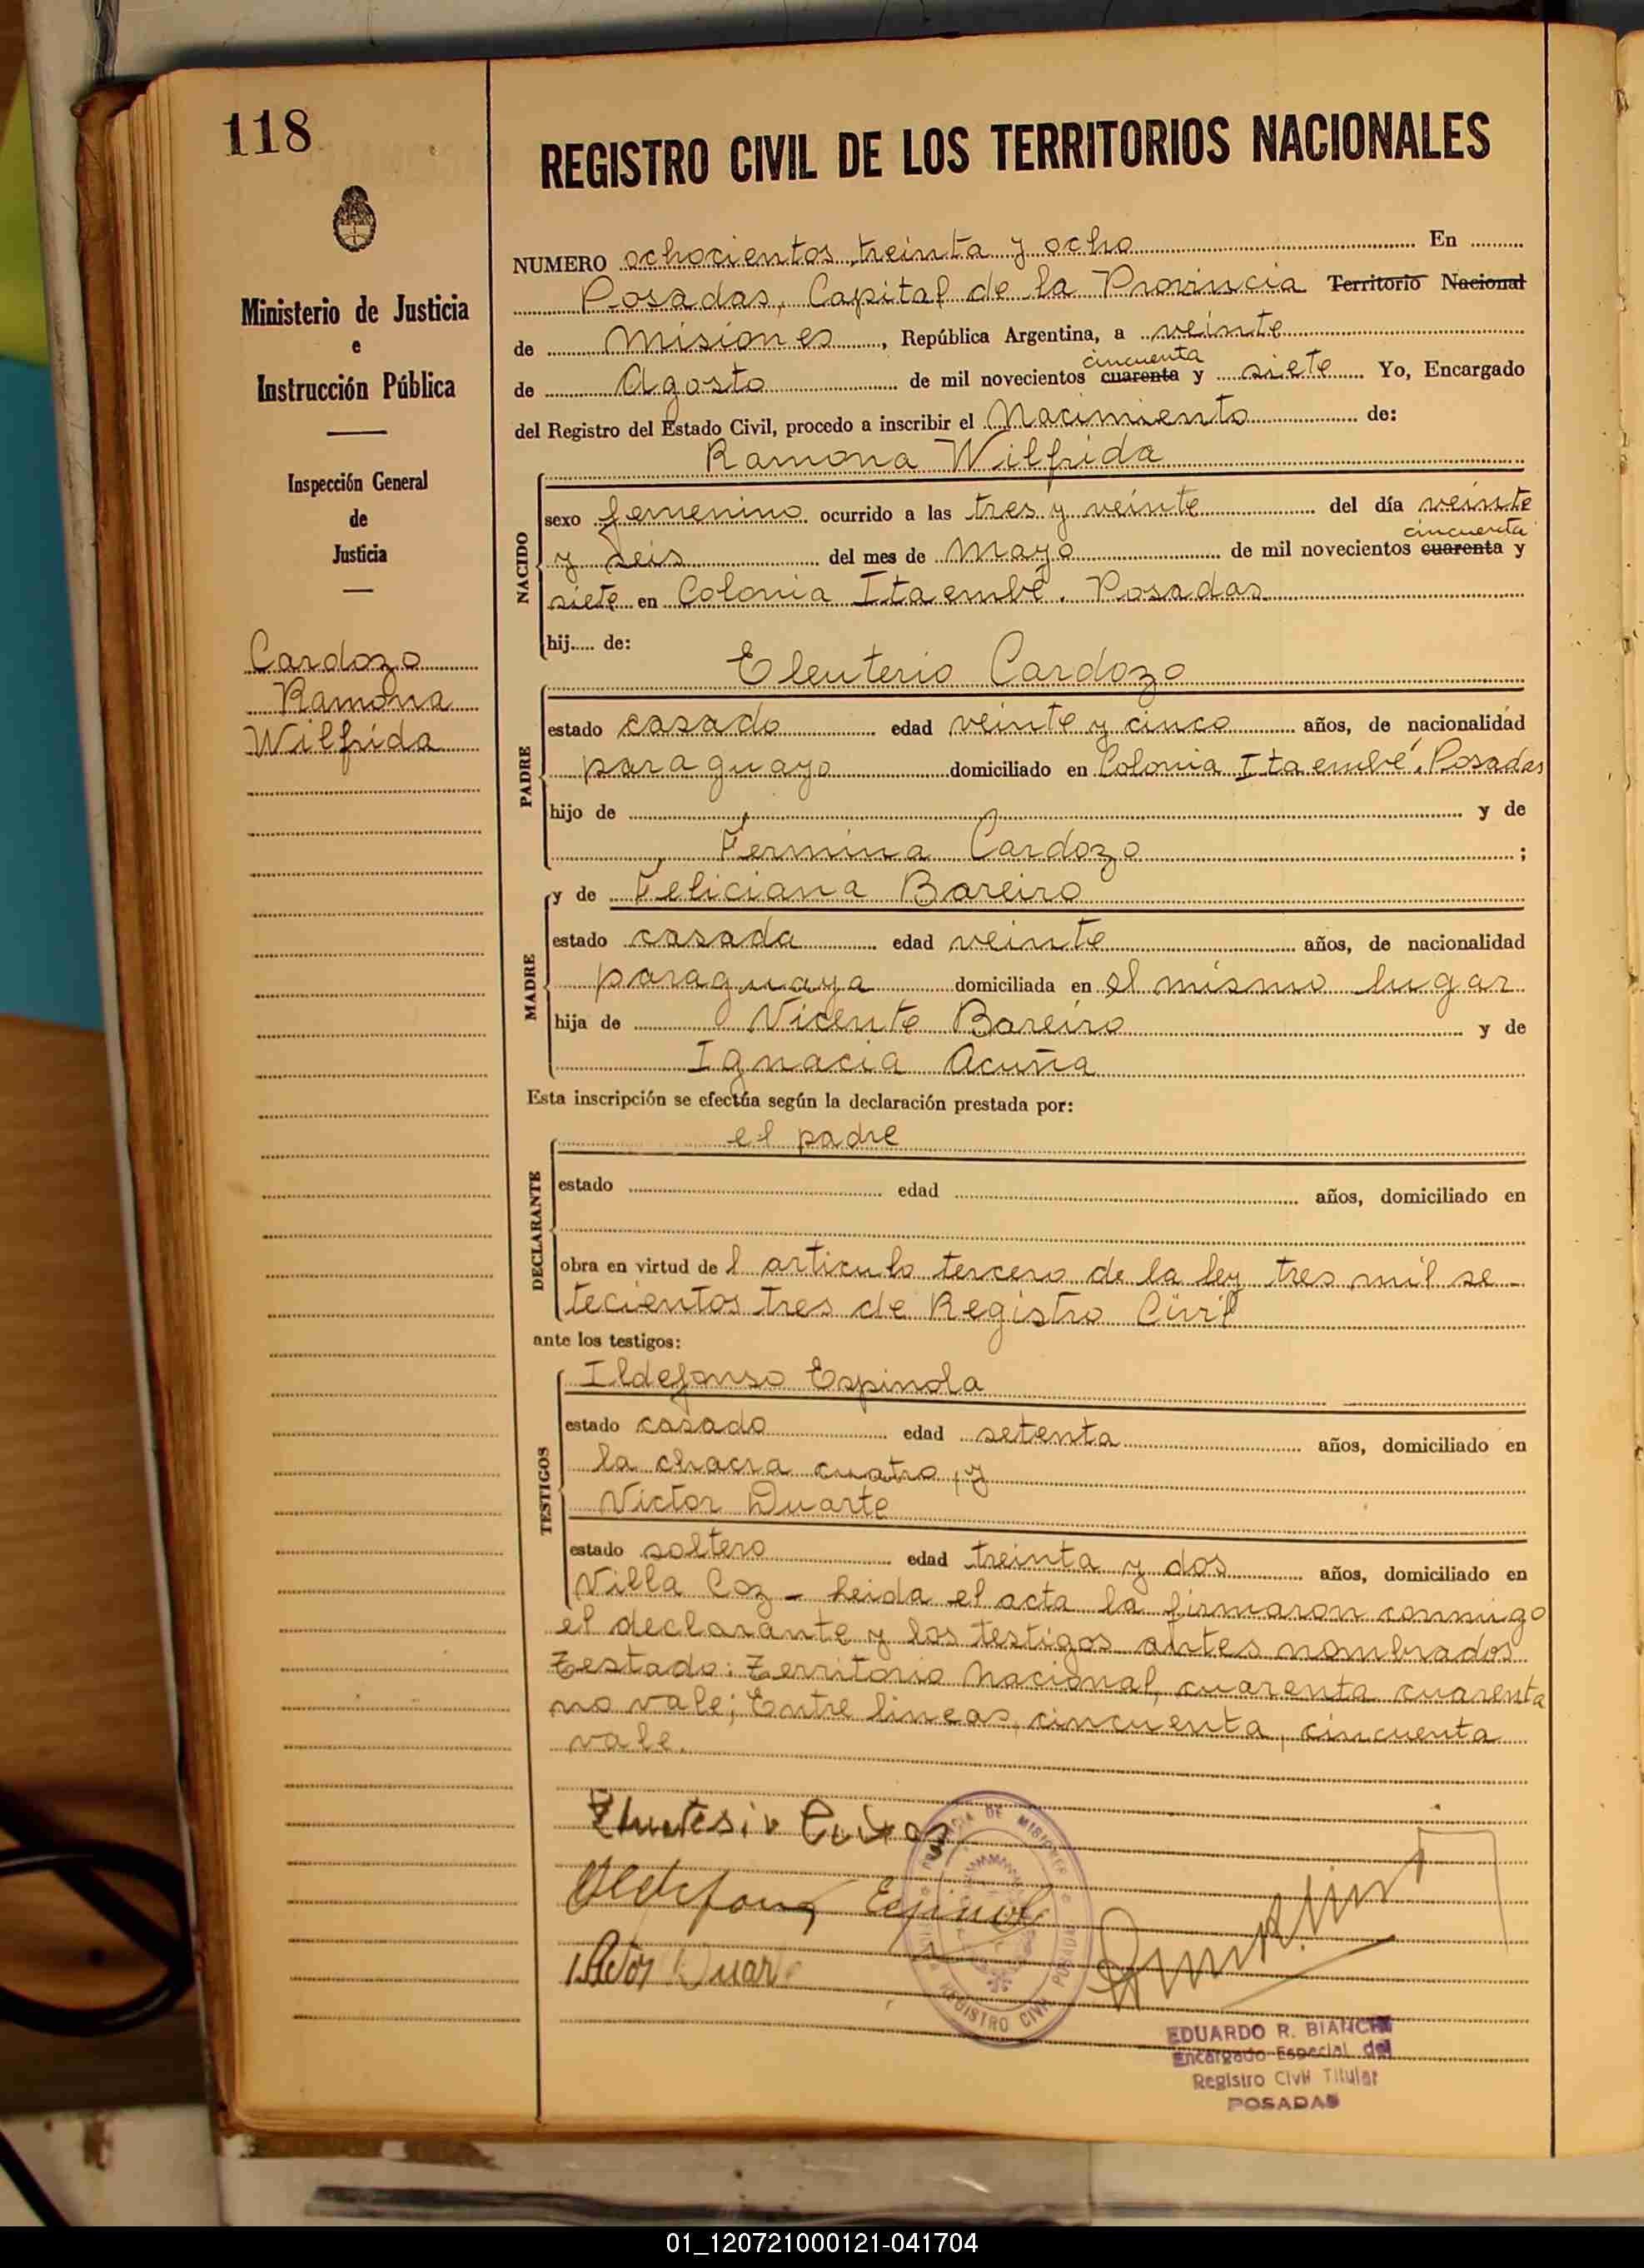 118
Ministerio de Justicia
e
Instrucción Pública
Inspección General
de
Justicia
Cardozo
Ramona
Wilfrida
REGISTRO CIVIL DE LOS TERRITORIOS NACIONALES
NUMERO ochocientos treinta y ocho En
Posadas, Capital de la Provincia Territorio Nacional
de Misiones, República Argentina, a veinte
cincuenta
de Agosto de mil novecientos cuarenta y siete Yo, Encargado
del Registro del Estado Civil, procedo a inscribir el Nacimiento de:
Ramona Wilfrida
NACIDO
sexo femenino ocurrido a las tres y veinte del día veinte
cincuenta
y seis del mes de Mayo de mil novecientos cuarenta y
siete en Colonia Itaembé. Posadas
hij..... de:
Eleuterio Cardozo
PADRE
estado casado edad veinte y cinco años, de nacionalidad
paraguayo domiciliado en Colonia Itaembé, Posadas
hijo de y de
Fermina Cardozo ;
y de Feliciana Bareiro
MADRE
estado casada edad veinte años, de nacionalidad
paraguaya domiciliada en el mismo lugar
hija de Vicente Bareiro y de
Ignacia Acuña
Esta inscripción se efectúa según la declaración prestada por:
el padre
DECLARANTE
estado edad años, domiciliado en
obra en virtud de l articulo tercero de la ley tres mil se-
tecientos tres de Registro Civil
ante los testigos:
Ildefonso Espinola
TESTIGOS
estado casado edad setenta años, domiciliado en
la chacra cuatro, y
Victor Duarte
estado soltero edad treinta y dos años, domiciliado en
Villa Coz - Leida el acta la firmaron conmigo
el declarante y los testigos antes nombrados
Testado: Territorio Nacional, cuarenta cuarenta
no vale; Entre lineas, cincuenta, cincuenta
vale.
PROVINCIA DE MISIONES
REGISTRO CIVIL POSADAS
EDUARDO R. BIANCHI
Encargado Especial del
Registro Civil Titular
POSADAS
01_120721000121-041704